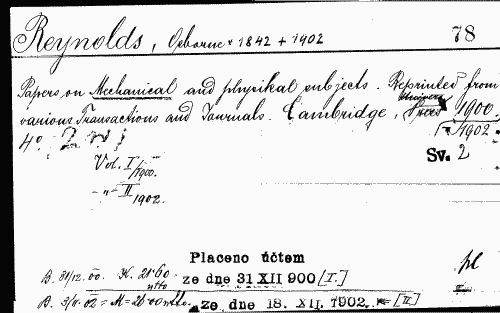 Reynolds, Osborne * 1842 + 1902 78
Papers on Mechanical and physikal subjects. Reprinted from
various Transactions and Journals. Cambridge, Univers. Press 1900.
4° 1902.
Sv. 2
Vol. I/1900.
-"- II/1902.
Placeno účtem
B. 31/12. 00. K. 21·60 ntto ze dne 31 XII 900 [I.] pl
ze dne 18. XII. 1902. [II]